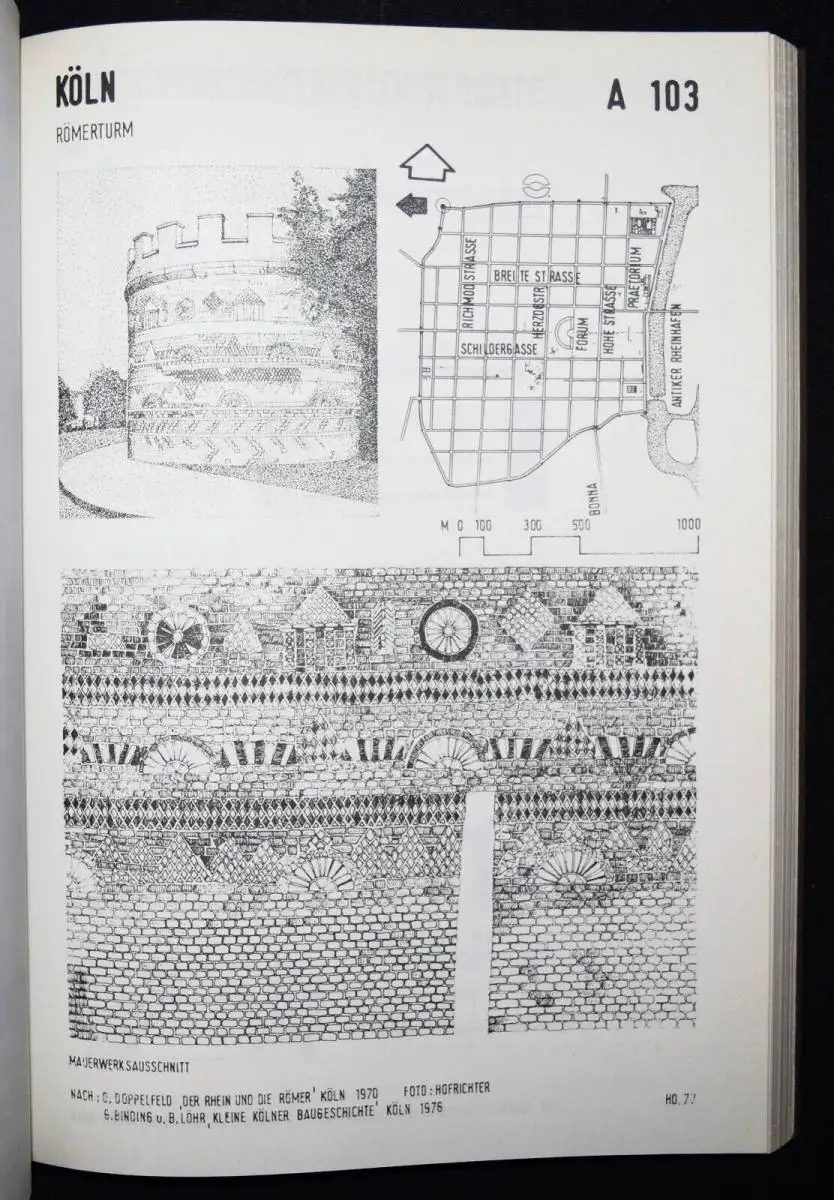 KÖLN
A 103
RÖMERTURM
RICHMODSTRASSE
BREITE STRASSE
HERZOGSTR
SCHILDERGASSE
FORUM
HOHE STRASSE
PRAETORIUM
ANTIKER RHEINHAFEN
BONNA
M 0 100 300 500 1000
MAUERWERKSAUSSCHNITT
NACH: O. DOPPELFELD ‚DER RHEIN UND DIE RÖMER' KÖLN 1970 FOTO: HOFRICHTER
G.BINDING u. B.LÖHR ‚KLEINE KÖLNER BAUGESCHICHTE' KÖLN 1976
HO.